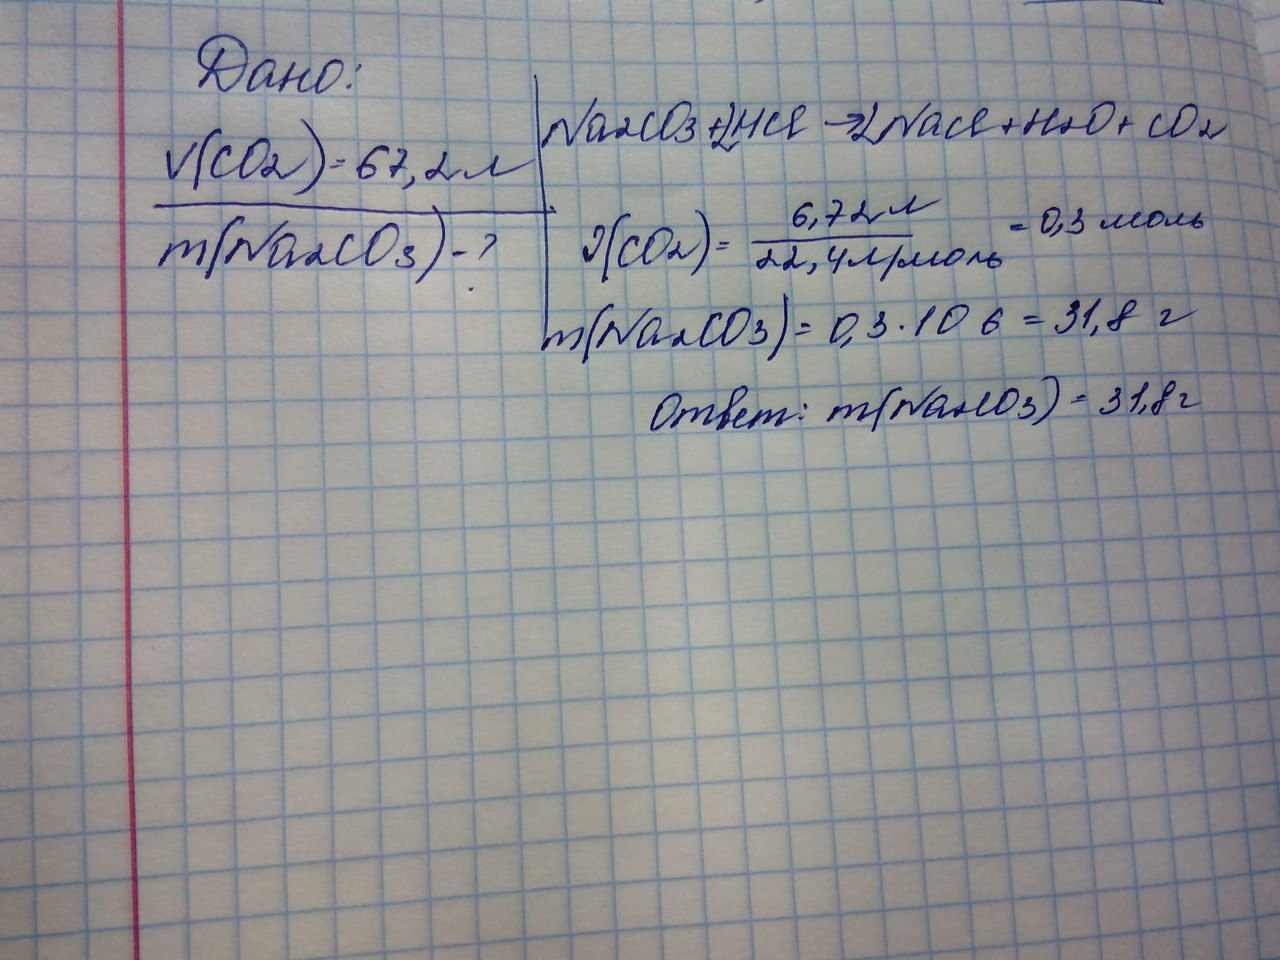 Дано:
V(CO2) = 67,2 л
m(Na2CO3) - ?
Na2CO3 + 2HCl → 2NaCl + H2O + CO2
ν(CO2) = 6,72 л / 22,4 л/моль = 0,3 моль
m(Na2CO3) = 0,3 · 106 = 31,8 г
Ответ: m(Na2CO3) = 31,8 г